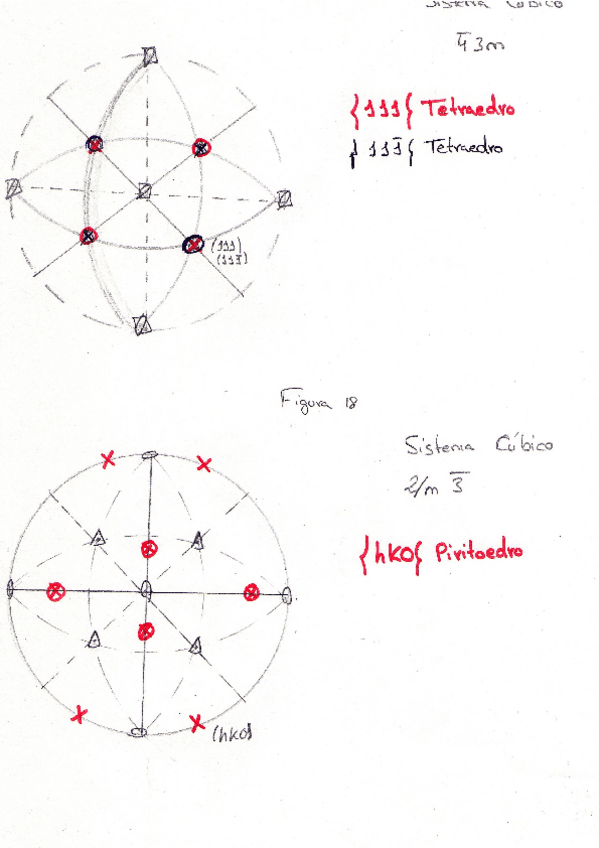 SISTEMA CÚBICO
4̅3m
{111{ Tetraedro
{111̅{ Tetraedro
(111)
(111̅)
Figura 18
Sistema Cúbico
2/m 3̅
{hKO{ Piritoedro
(hKO)